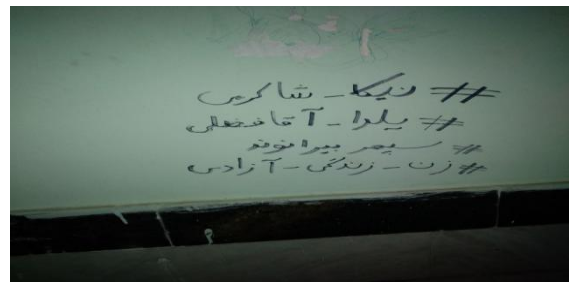 # نیکا_شاکرمی
# یلدا_آقافضلی
# سپهر بیرانوند
# زن_زندگی_آزادی